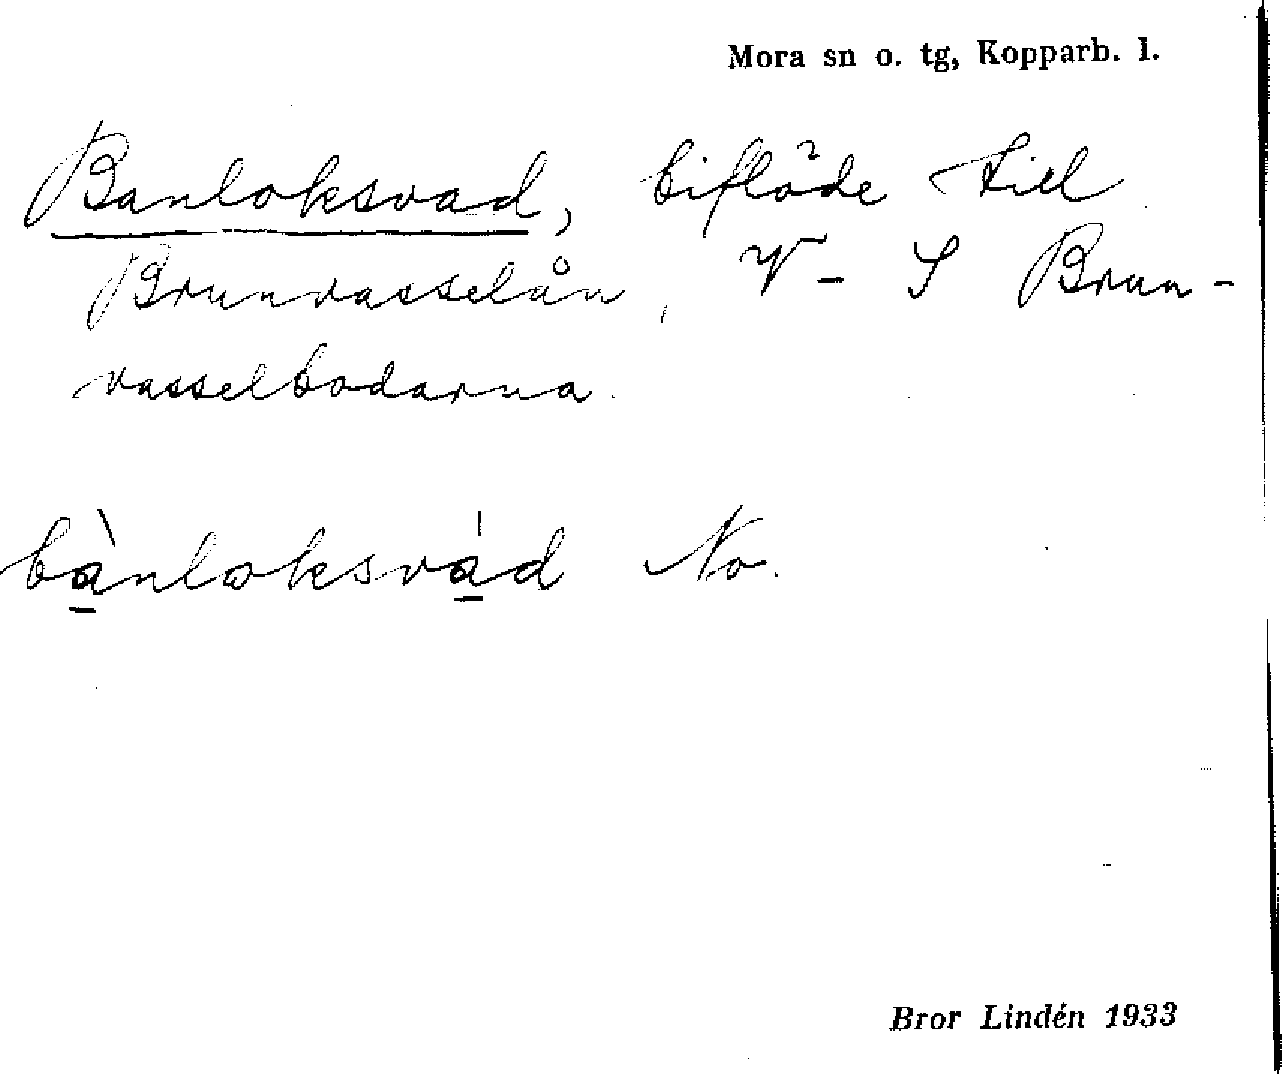 Mora sn o. tg, Kopparb. l.
Banloksvad, biflöde till
Brunvasselån, V - S Brun-
vasselbodarna.
bànloksvád No.
Bror Lindén 1933